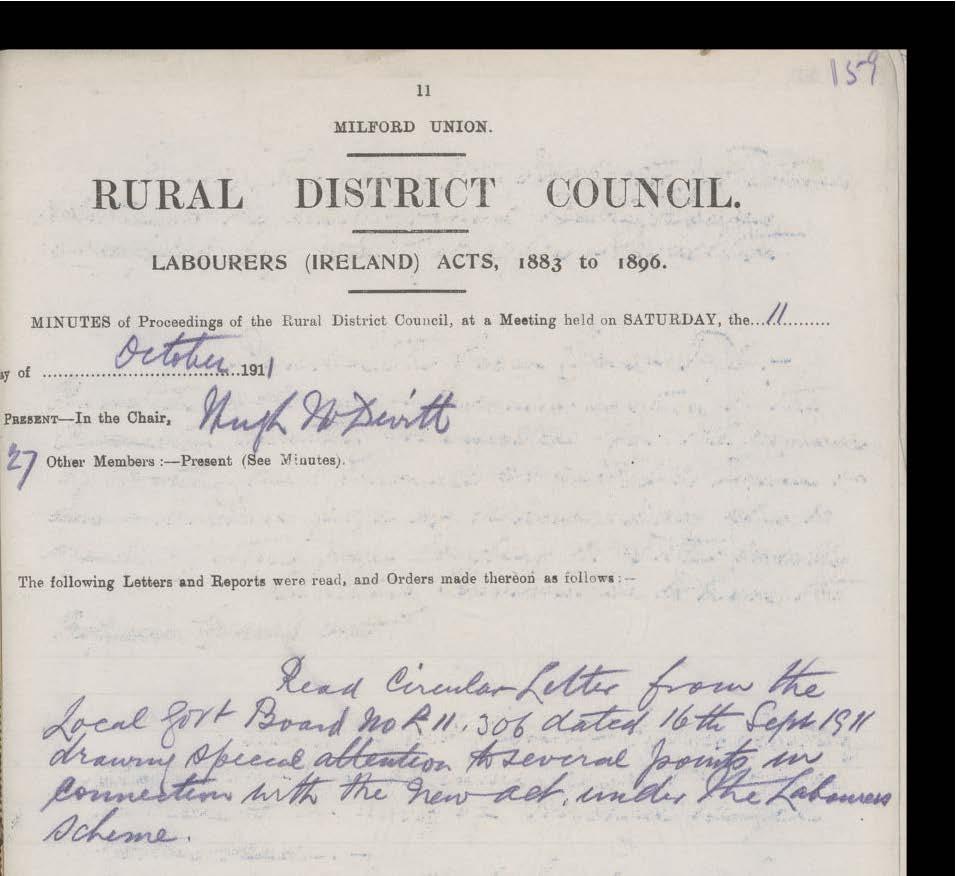 159
11
MILFORD UNION.
RURAL DISTRICT COUNCIL.
LABOURERS (IRELAND) ACTS, 1883 to 1896.
MINUTES of Proceedings of the Rural District Council, at a Meeting held on SATURDAY, the...11.........
ay of ..............October..............1911
PRESENT—In the Chair, Hugh McDevitt
27 Other Members :—Present (See Minutes).
The following Letters and Reports were read, and Orders made thereon as follows:—
Read Circular Letter from the
Local Govt Board No R 11. 306 dated 16th Sept 1911
drawing special attention to several points in
connection with the new act, under the Labourers
Scheme.